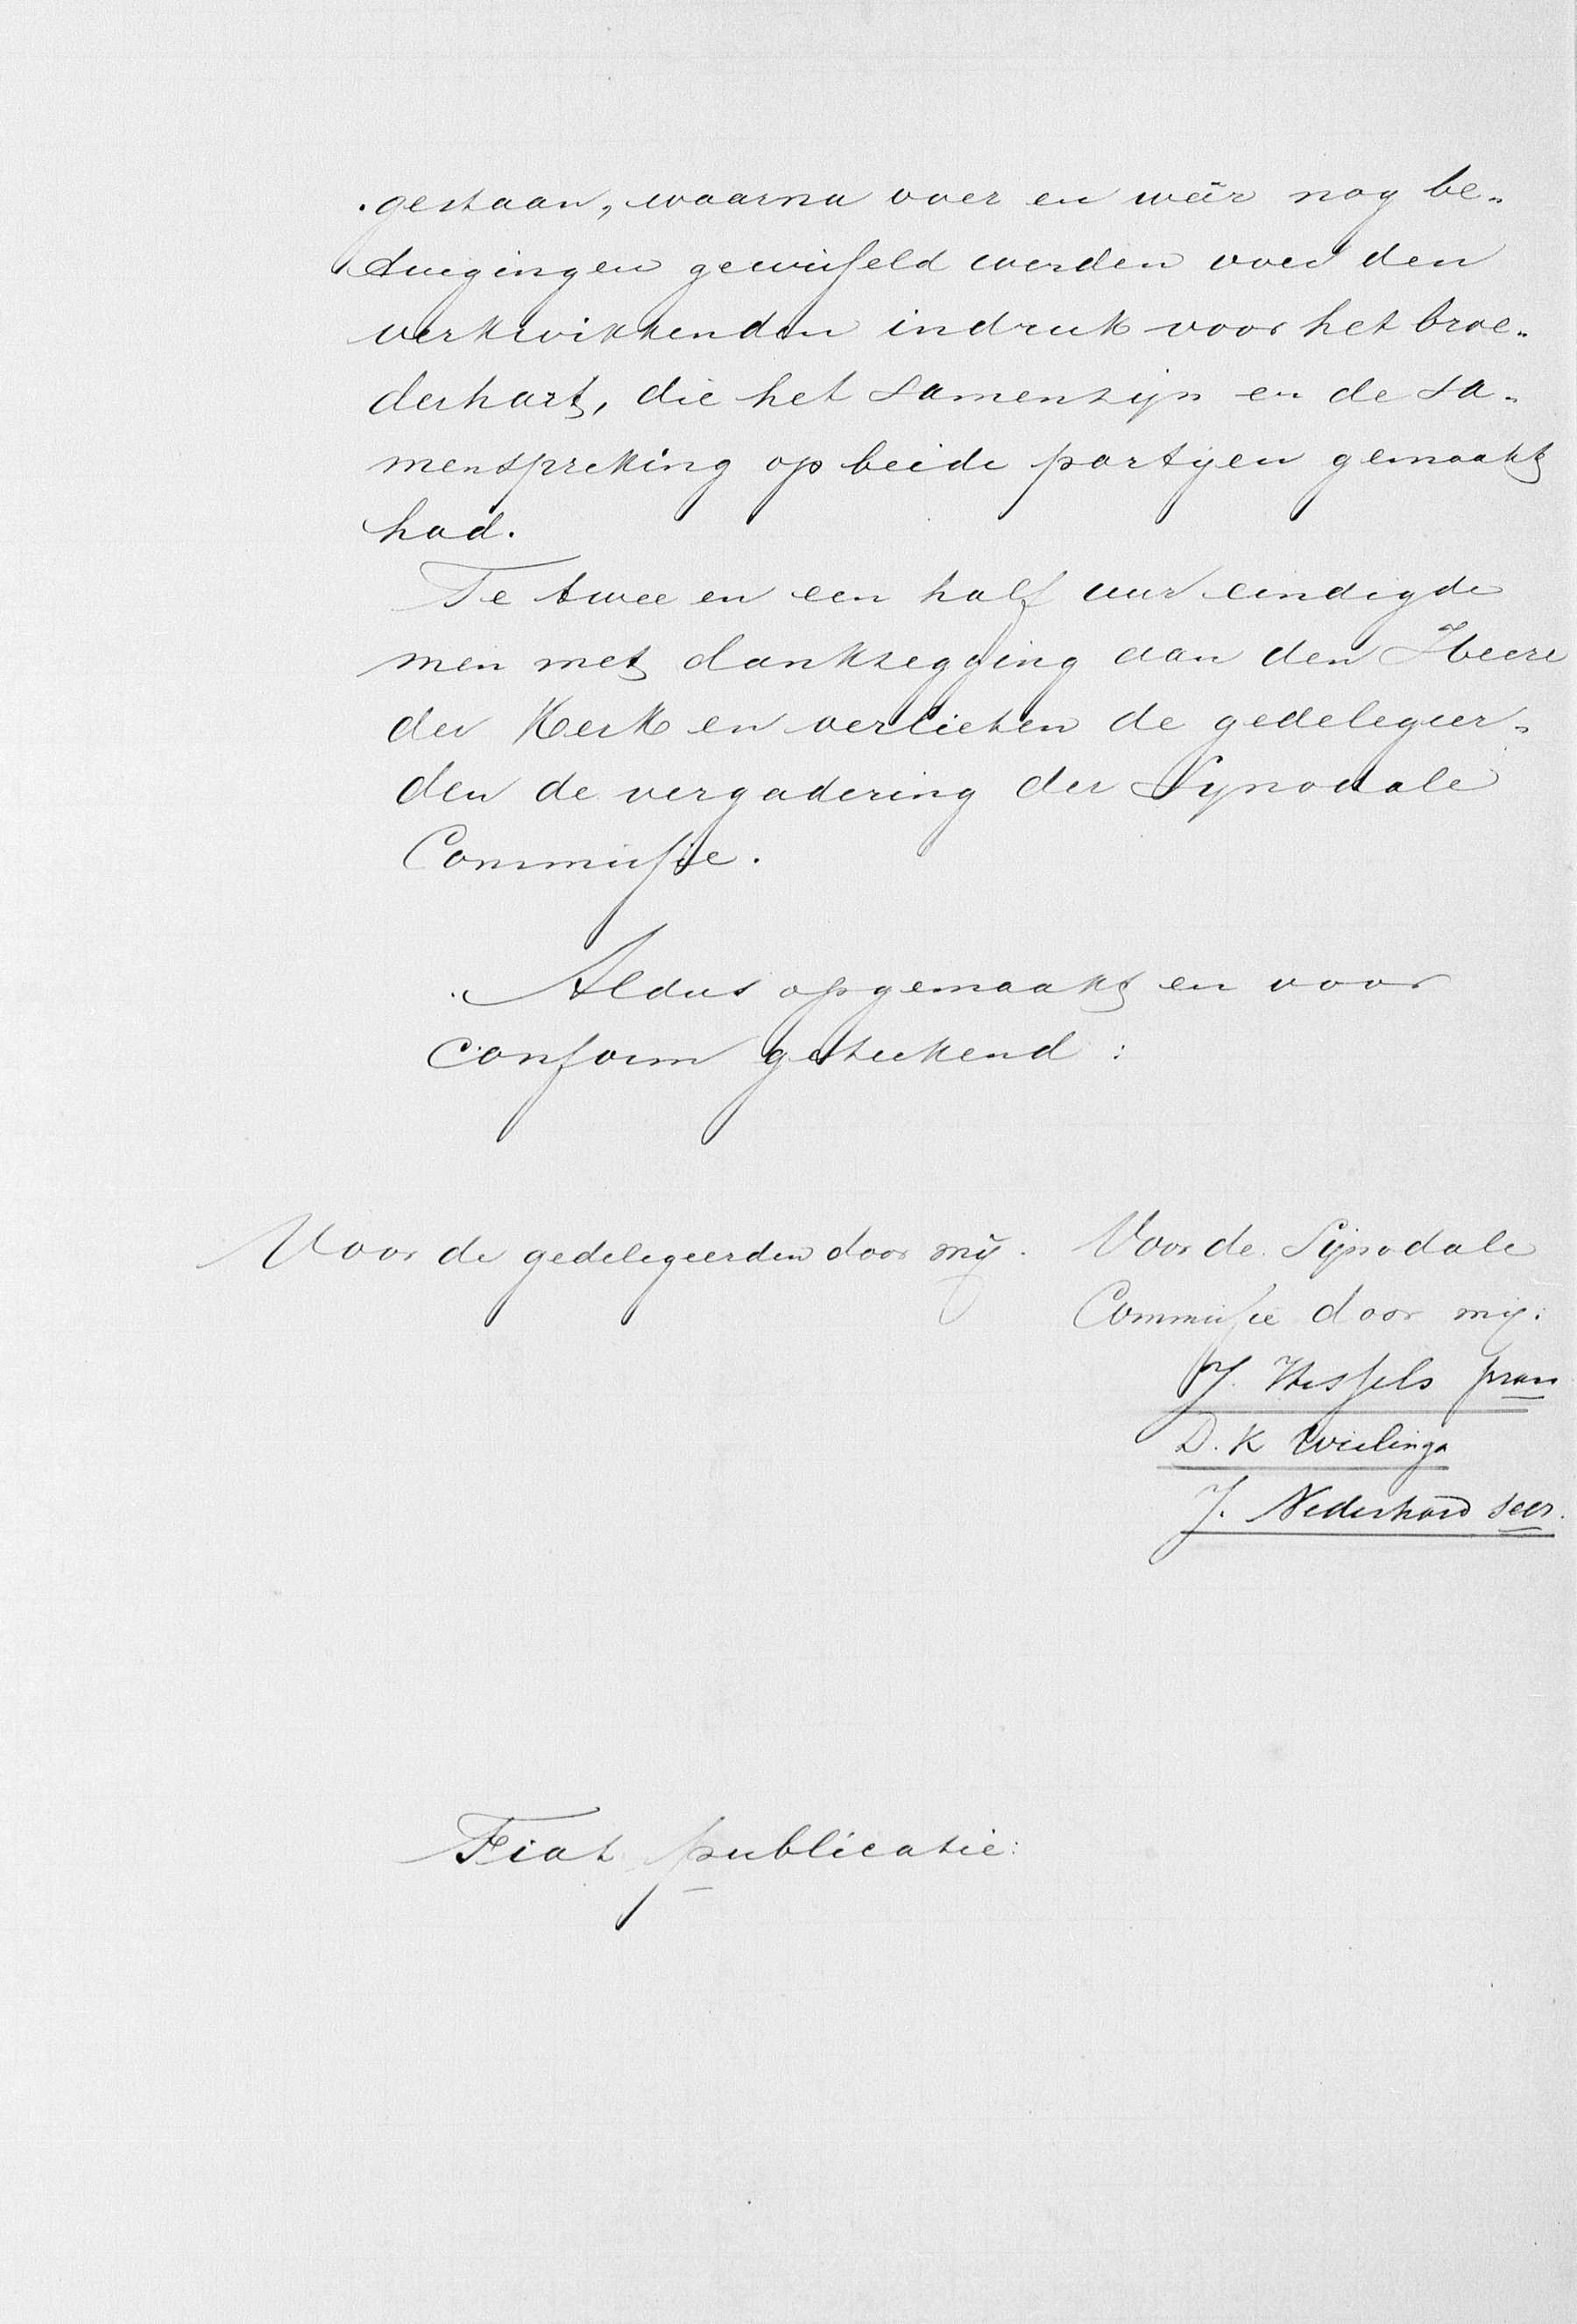 gestaan, waarna over en weêr nog be„
tuigingen gewisseld werden over den
verkwikkenden indruk voor het broe„
derhart, die het samenzijn en de sa„
menspreking op beide partijen gemaakt
had.
Te twee en een half uur eindigde
men met dankzegging aan den Heere
der Kerk en verlieten de gedelegeer„
den de vergadering der Synodale
Commissie.
Aldus opgemaakt en voor
conform geteekend:
Voor de gedelegeerden door mij.
Voor de Synodale
Commissie door mij:
J. Hessels praes
D. K Wielinga
J. Nederhoed scr.
Fiat publicatie: